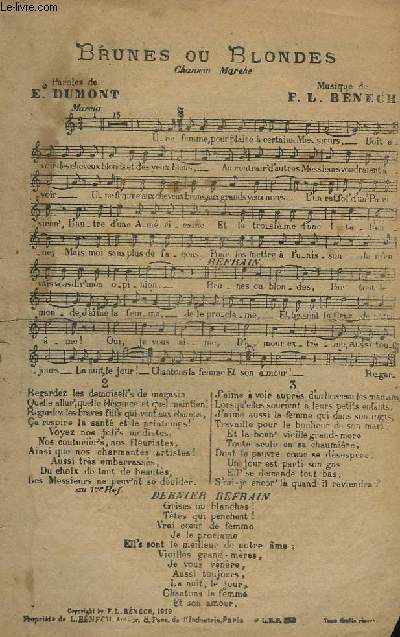 BRUNES OU BLONDES
Chanson Marche
Paroles de
E. DUMONT
Musique de
F. L. BÉNECH
Marcia
15
U.ne femme, pour plaire à certains Messieurs, Doit a_
voir des cheveux blonds et des yeux bleus, Au contrair' d'autres Messieurs voudraient
voir U.ne figure aux cheveux bruns aux grands yeux noirs L'un est fol d'un' Pari_
sienn', L'au_tre d'une A_mé_ri_caine Et le troisième d'une
Mais moi sans plus de fa_çons Pour les mettre à l'u_nis_son
mon o_pi_nion.
REFRAIN
Bru_nes ou blon_des, Par tout le
mon_de, J'aime la fem_me, Je le pro_cla_me, Ell's sont la fleur de
â_me! Oui, je vous ai_me, D'a_mour ex_trê_me, Aussi tou_
jours, La nuit, le jour Chantons la femme Et son amour! Regar_
2
Regardez les demoisell's de magasin
Quelle allur', quelle élégance et quel maintien!
Regardez les braves fill's qui vont aux champs,
Ça respire la santé et le printemps!
Voyez nos joli's modistes,
Nos couturièr's, nos fleuristes,
Ainsi que nos charmantes artistes!
Aussi très embarrassés,
Du choix de tant de beautés,
Les Messieurs ne peuv'nt se décider.
au 1er Ref.
3
J'aime à voir auprès d'un berceau les mamans
Lorsqu'elles sourient à leurs petits enfants,
J'aime aussi la femme qui dans son logis,
Travaille pour le bonheur de son mari
Et la bonn' vieille grand-mère
Toute seule en sa chaumière,
Dont le pauvre cœur se désespère.
Un jour est parti son gos
Ell' se demande tout bas,
S'rai-je encor' là quand il reviendra?
DERNIER REFRAIN
Grises ou blanches!
Têtes qui penchent!
Vrai cœur de femme
Je le proclame
Ell's sont le meilleur de notre âme;
Vieilles grand-mères,
Je vous vénère,
Aussi toujours,
La nuit, le jour,
Chantons la femme
Et son amour.
Copyright by F. L. BÉNECH, 1912
Propriété de L. BÉNECH, Auteur, 8, Pass. de l'Industrie, Paris
L.B.B.
Tous droits